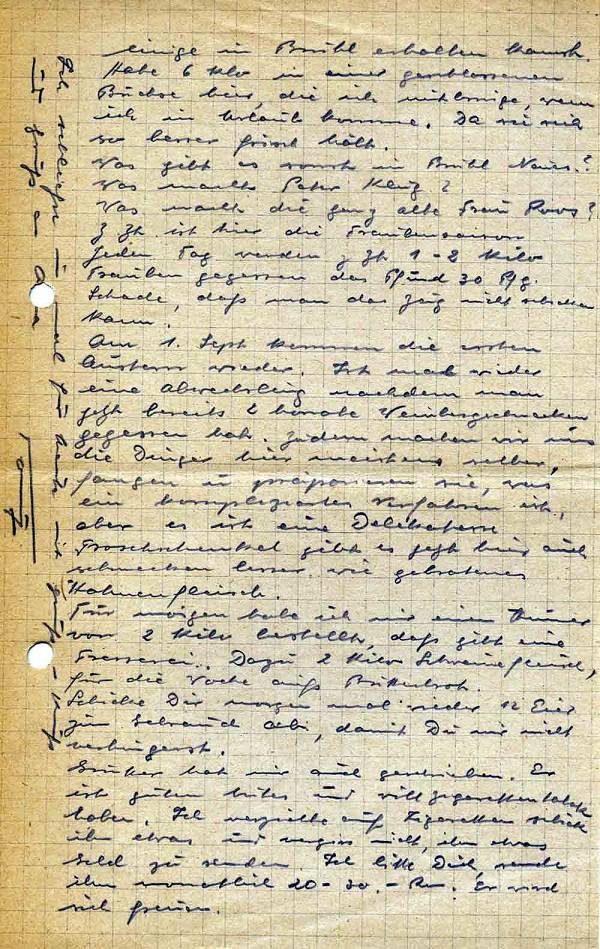 einige in Brühl erhalten kannst.
Habe 6 Kilo in einer geschlossenen
Büchse hier, die ich mitbringe, wenn
ich in Urlaub komme. Da sie sich
so besser frisch hält.
Was gibt es sonst in Brühl Neues?
Was macht Peter
Was macht die ganz alte Frau Roos?
Z Zt ist hier die Traubensaison
Jeden Tag werden z Zt 1-2 Kilo
Trauben gegessen das Pfund 30 Pfg.
Schade, daß man das Zeug nicht schicken
kann.
Am 1. Sept kommen die ersten
Austern wieder. Ist mal wieder
eine Abwechslung nachdem man
jetzt bereits 2 Monate Weinbergschnecken
gegessen hat. Zudem machen wir uns
die Dinger hier meistens selber,
fangen u präparieren sie, was
ein kompliziertes Verfahren ist,
aber es ist eine Delikatesse
Froschschenkel gibt es jetzt hier auch
schmecken besser wie gebratenes
Hahnenfleisch.
Für morgen habe ich mir einen
von 2 Kilo bestellt, daß gibt eine
Fresserei.. Dazu 2 Kilo Schweinefleisch,
für die Woche aufs Butterbrot.
Schicke Dir morgen mal wieder 12 Eier
zum , damit Du mir nicht
verhungerst.
hat mir auch geschrieben. Er
ist guten Mutes und will Zigarettentabak
haben. Ich verzichte auf Zigaretten schick
ihm etwas und vergiss nicht, ihm etwas
Geld zu senden. Ich bitte Dich, sende
ihm monatlich 20-30.- Rm. Er wird
sich freuen.
Ich schließe mal für heute mit Gruß - Kuß